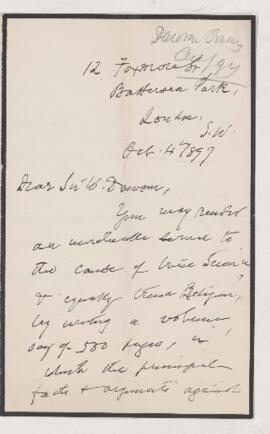 12 Foxmore St
Battersea Park,
London,
S.W.
Oct. 4th 1897
Dear Sir W. Dawson,
You may render
an invaluable service to
the cause of true Science
& equally true Religion,
by writing a volume,
say of 500 pages, in
which the principal
facts & arguments against